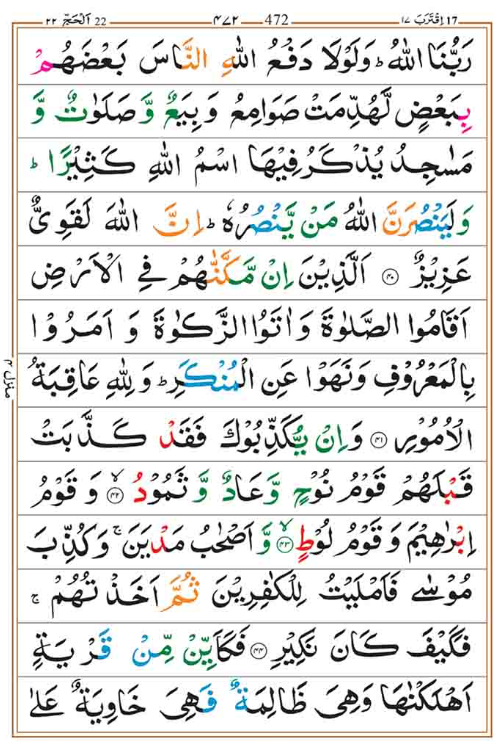 اِقْتَرَبَ ١٧ 17 472 ٤٧٢ اَلْحَجّ ٢٢ 22
رَبُّنَا اللّٰهُ ؕ وَلَوْلَا دَفْعُ اللّٰهِ النَّاسَ بَعْضَهُمْ
بِبَعْضٍ لَّهُدِّمَتْ صَوَامِعُ وَبِيَعٌ وَّصَلَوٰتٌ وَّ
مَسٰجِدُ يُذْكَرُ فِيْهَا اسْمُ اللّٰهِ كَثِيْرًا ؕ
وَلَيَنْصُرَنَّ اللّٰهُ مَنْ يَّنْصُرُهٗ ؕ اِنَّ اللّٰهَ لَقَوِىٌّ
عَزِيْزٌ ﴿۴۰﴾ اَلَّذِيْنَ اِنْ مَّكَّنّٰهُمْ فِى الْاَرْضِ
اَقَامُوا الصَّلٰوةَ وَاٰتَوُا الزَّكٰوةَ وَاَمَرُوْا
بِالْمَعْرُوْفِ وَنَهَوْا عَنِ الْمُنْكَرِ ؕ وَلِلّٰهِ عَاقِبَةُ
الْاُمُوْرِ ﴿۴۱﴾ وَاِنْ يُّكَذِّبُوْكَ فَقَدْ كَذَّبَتْ
قَبْلَهُمْ قَوْمُ نُوْحٍ وَّعَادٌ وَّثَمُوْدُ ﴿۴۲﴾ۙ وَقَوْمُ
اِبْرٰهِيْمَ وَقَوْمُ لُوْطٍ ﴿۴۳﴾ۙ وَّاَصْحٰبُ مَدْيَنَ ۚ وَكُذِّبَ
مُوْسٰى فَاَمْلَيْتُ لِلْكٰفِرِيْنَ ثُمَّ اَخَذْتُهُمْ ۚ
فَكَيْفَ كَانَ نَكِيْرِ ﴿۴۴﴾ فَكَاَيِّنْ مِّنْ قَرْيَةٍ
اَهْلَكْنٰهَا وَهِىَ ظَالِمَةٌ فَهِىَ خَاوِيَةٌ عَلٰى
منزل ٤